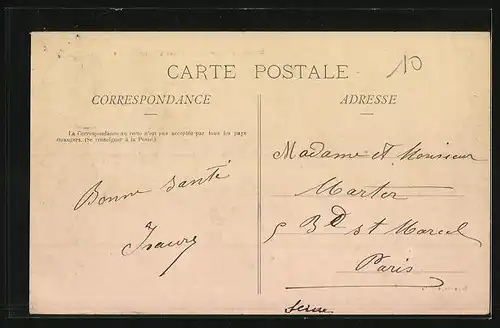 10
CARTE POSTALE
CORRESPONDANCE
ADRESSE
La Correspondance au recto n'est pas acceptée par tous les pays
étrangers. (Se renseigner à la Poste.)
Bonne santé
Isaure
Madame et Monsieur
Marter
5 Bd St Marcel
Paris
Seine